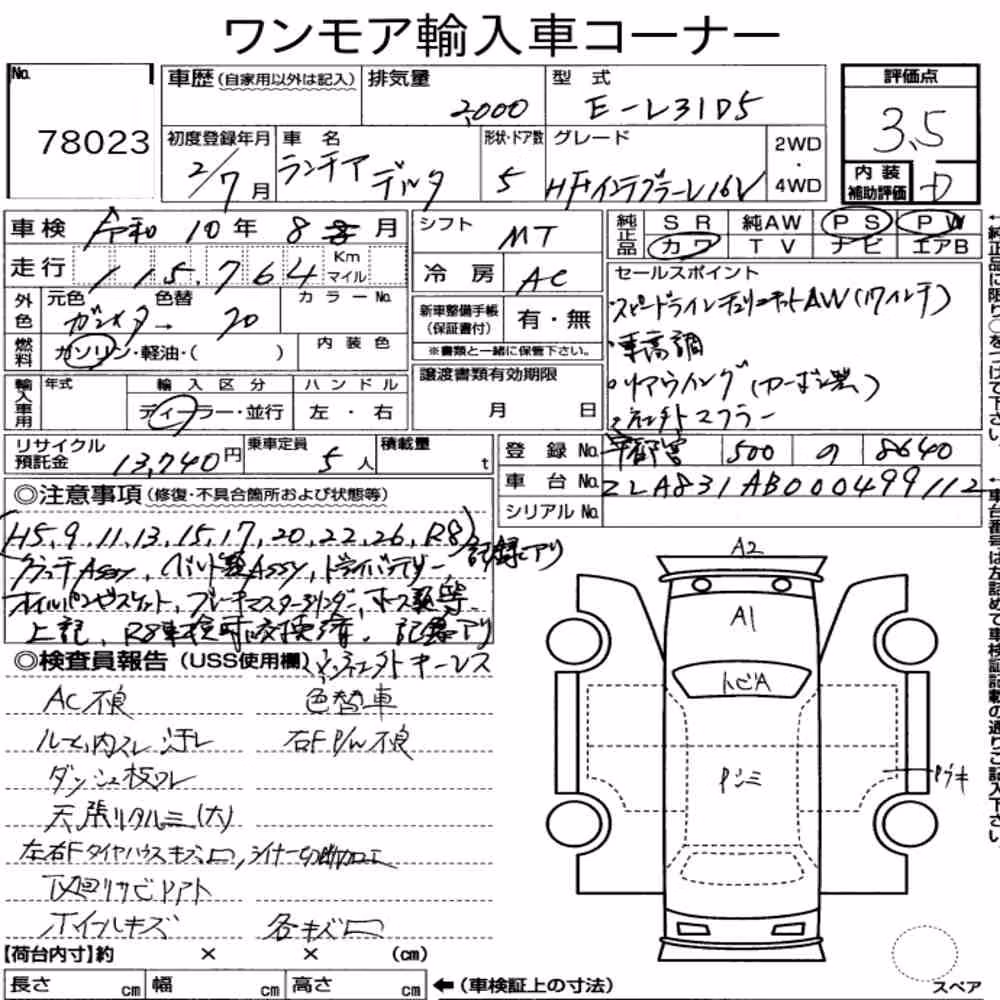 ワンモア輸入車コーナー
No. 78023
車歴(自家用以外は記入)
排気量 2,000
型式 E-L31D5
評価点 3.5
初度登録年月 2/7月
車名 ランチア デルタ
形状・ドア数 5
グレード HFインテグラーレ16V
2WD・4WD
内装補助評価 D
車検 令和10年8月
シフト MT
純正品 SR 純AW PS PW
カワ TV ナビ エアB
走行 115,764 Km マイル
冷房 AC
セールスポイント
外色 元色 ガンメタ→ 色替 20 カラーNo.
新車整備手帳(保証書付) 有・無
・スピードラインチェリーキットAW(17インチ)
燃料 ガソリン・軽油・( ) 内装色
※書類と一緒に保管下さい。
・車高調
輸入車用 年式 輸入区分 ハンドル
譲渡書類有効期限
・リアウイング(カーボン製)
ディーラー・並行 左・右
月 日
マフラー
リサイクル預託金 13,740円 乗車定員 5人 積載量 t
登録No. 宇都宮 500 の 8640
車台No. ZLA831AB000499112
シリアルNo.
◎注意事項(修復・不具合箇所および状態等)
(H5,9,11,13,15,17,20,22,26,R8)記録アリ
クラッチAssy、ベルト類Assy、ドライバッテリー
オイルパンガスケット、ブレーキマスターシリンダー、ホース類等
上記、R8車検時交換済、記録アリ
◎検査員報告(USS使用欄) キーレス
AC不良 色替車
ルーム内スレ汚レ 右F P/W不良
ダッシュ板ワレ
天張リタルミ(大)
左右Fタイヤハウスキズ凹,シイナー切断加工
下廻リサビ
ホイールキズ 各キズ凹
A2
A1
トビA
【荷台内寸】約 × × (cm)
長さ cm 幅 cm 高さ cm ←(車検証上の寸法)
スペア